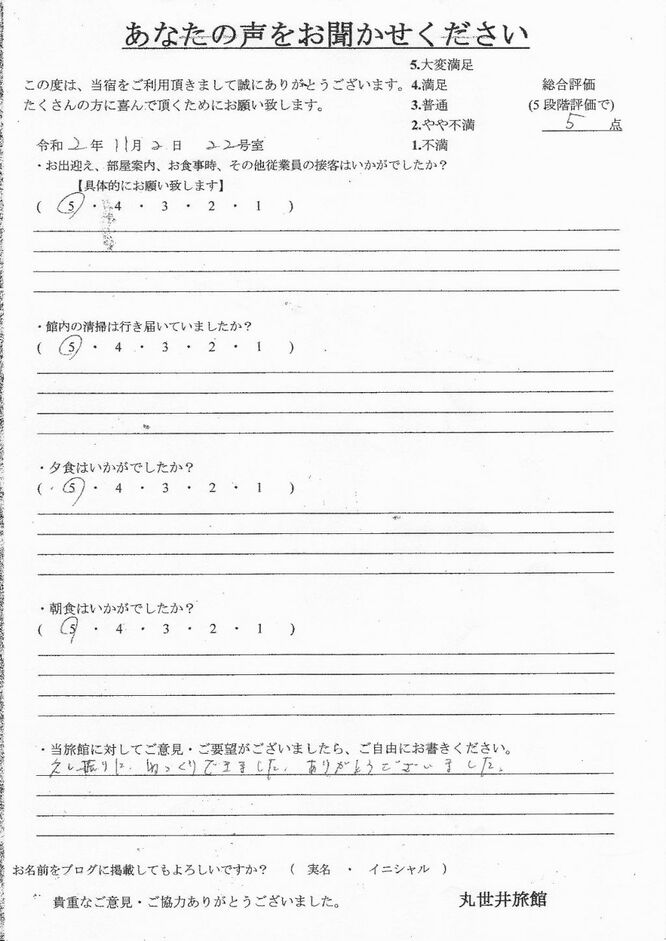 あなたの声をお聞かせください
5.大変満足
この度は、当宿をご利用頂きまして誠にありがとうございます。 4.満足 総合評価
たくさんの方に喜んで頂くためにお願い致します。 3.普通 (5段階評価で)
2.やや不満 5 点
令和 2 年 11 月 2 日 22 号室 1.不満
・お出迎え、部屋案内、お食事時、その他従業員の接客はいかがでしたか？
【具体的にお願い致します】
( 5 ・ 4 ・ 3 ・ 2 ・ 1 )
・館内の清掃は行き届いていましたか？
( 5 ・ 4 ・ 3 ・ 2 ・ 1 )
・夕食はいかがでしたか？
( 5 ・ 4 ・ 3 ・ 2 ・ 1 )
・朝食はいかがでしたか？
( 5 ・ 4 ・ 3 ・ 2 ・ 1 )
・当旅館に対してご意見・ご要望がございましたら、ご自由にお書きください。
久し振りに、ゆっくりできました。ありがとうございました。
お名前をブログに掲載してもよろしいですか？ ( 実名 ・ イニシャル )
貴重なご意見・ご協力ありがとうございました。 丸世井旅館